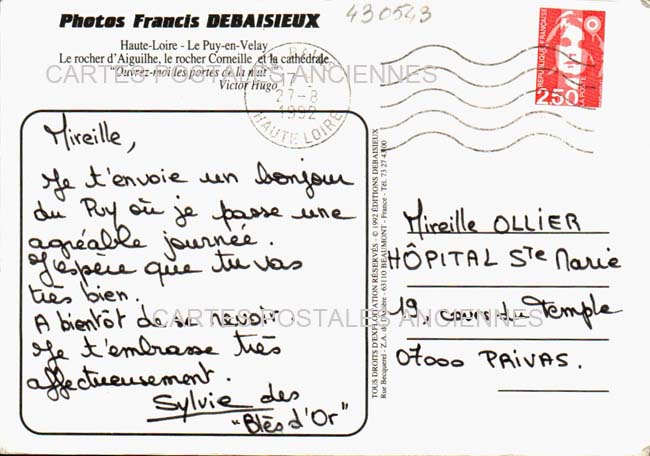 Photos Francis DEBAISIEUX
430543
Haute-Loire - Le Puy-en-Velay
Le rocher d'Aiguilhe, le rocher Corneille et la cathédrale
"Ouvrez-moi les portes de la nuit"
Victor Hugo
CARTES POSTALES ANCIENNES
17
27-8
1992
HAUTE LOIRE
REPUBLIQUE FRANÇAISE
2,50
LA POSTE
Mireille,
Je t'envoie un bonjour
du Puy où je passe une
agréable journée.
J'espère que tu vas
très bien.
A bientôt de se revoir
Je t'embrasse très
affectueusement.
Sylvie des
"Blés d'Or"
CARTES POSTALES ANCIENNES
TOUS DROITS D'EXPLOITATION RÉSERVÉS - © 1992 ÉDITIONS DEBAISIEUX
Rue Becquerel - Z.A. de - 63110 BEAUMONT - France - Tél. 73 27 43 00
Mireille OLLIER
HÔPITAL Ste Marie
19, cours du Temple
07000 PRIVAS.